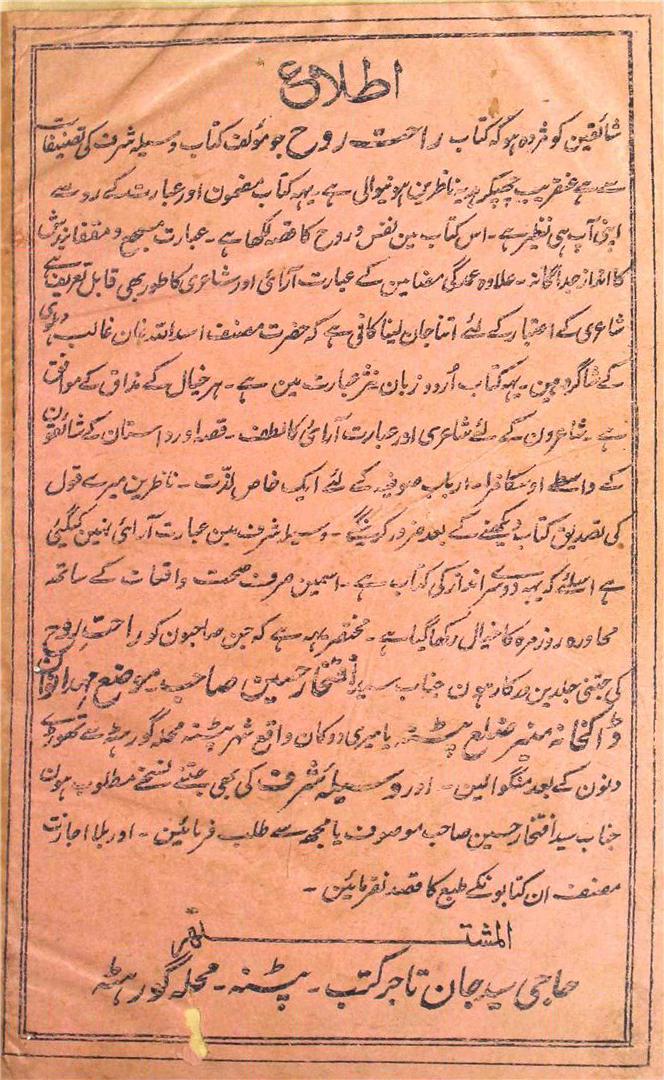 اطلاع
شائقین کو مژدہ ہو کہ کتاب راحت روح جو مؤلف کتاب وسیلہ شرف کی تصنیفات
سے ہے عنقریب چھپکر ہدیہ ناظرین ہونیوالی ہے ۔ یہہ کتاب مضمون اور عبارت کے رو سے
اپنی آپ ہی نظیر ہے ۔ اس کتاب مین نفس و روح کا قصہ لکھا ہے ۔ عبارت مسجع و مقفا ہر
کا انداز جداگانہ ۔ علاوہ عمدگی مضامین کے عبارت آرائی اور شاعری کا طور بھی قابل تعریف ہے
شاعری کے اعتبار کے لئے اتنا جان لینا کافی ہے کہ حضرت مصنف اسد اللہ خان غالب دہلوی
کے شاگرد ہین ۔ یہہ کتاب اُردو زبان نثر عبارت مین ہے ۔ ہر خیال کے مذاق کے موافق
ہے ۔ شاعرون کے لئے شاعری اور عبارت آرائی کا لطف ۔ قصہ اور داستان کے شائقون
کے واسطے اوسکا مزا ۔ ارباب صوفیہ کے لئے ایک خاص لذّت ۔ ناظرین میرے قول
کی تصدیق کتاب دیکھنے کے بعد ضرور کرینگے ۔ وسیلہ شرف مین عبارت آرائی نہین کیگئی
ہے اسلئے کہ یہہ دوسرے انداز کی کتاب ہے ۔ اسمین صرف صحت واقعات کے ساتھ
محاورہ روزمرہ کا خیال رکھا گیا ہے ۔ مختصر یہہ ہے کہ جن صاحبون کو راحت روح
کی جتنی جلدین درکار ہون جناب سید افتخار حسین صاحب موضع مہداوان
ڈاکخانہ منیر ضلع پٹنہ یا میری دوکان واقع شہر پٹنہ محلہ گورہٹہ سے تھوڑے
دنون کے بعد منگوالین ۔ اور وسیلہ شرف کی بھی جتنے نسخے مطلوب ہون
جناب سید افتخار حسین صاحب موصوف یا مجھ سے طلب فرمائین ۔ اور بلا اجازت
مصنف ان کتابونکے طبع کا قصد نفرمائین ۔
المشتہر
حاجی سید جان تاجر کتب ۔ پٹنہ ۔ محلہ گورہٹہ